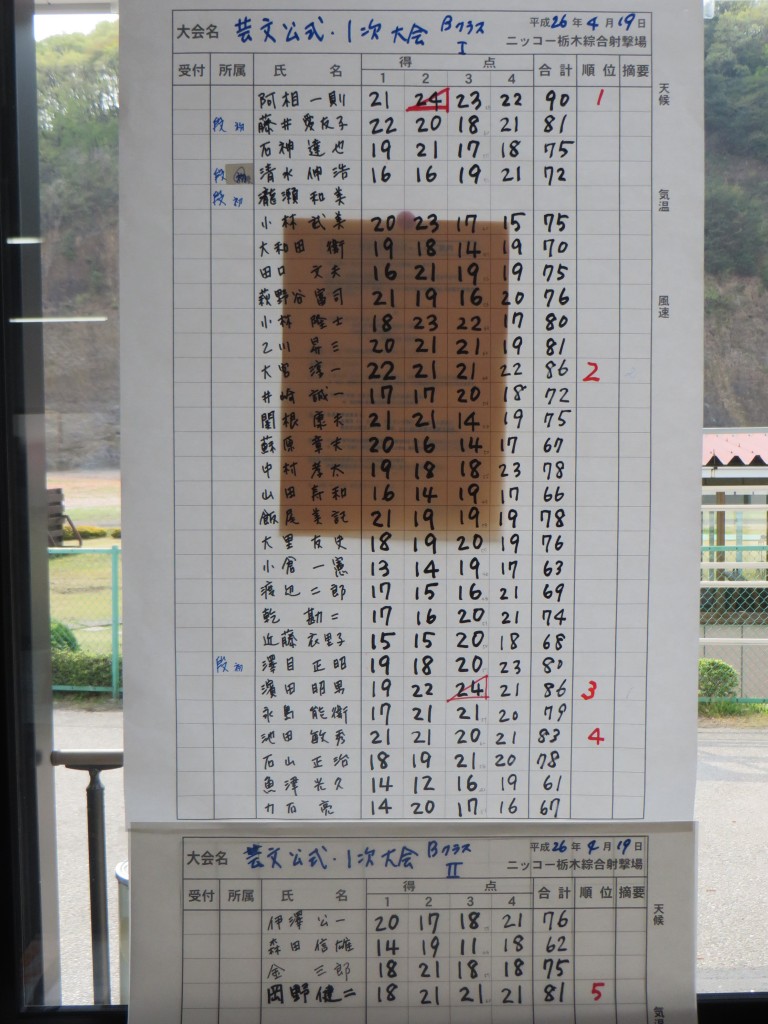 大会名 芸文公式・1次大会 Bクラス I 平成26年4月19日
ニッコー栃木綜合射撃場
受付 所属 氏名 得点 合計 順位 摘要 天候
1 2 3 4
阿相一則 21 24 23 22 90 1
段初 藤井愛友子 22 20 18 21 81
石神達也 19 21 17 18 75
段 清水伸浩 16 16 19 21 72
段初 瀧瀬和美 気温
小林武美 20 23 17 15 75
大和田衛 19 18 14 19 70
田口文夫 16 21 19 19 75
萩野谷富司 21 19 16 20 76 風速
小林隆士 18 23 22 17 80
乙川昇三 20 21 21 19 81
大宮淳一 22 21 21 22 86 2
井崎誠一 17 17 20 18 72
関根康夫 21 21 14 19 75
蘇原章夫 20 16 14 17 67
中村孝太 19 18 18 23 78
山田寿和 16 14 19 17 66
飯尾美記 21 19 19 19 78
大里友史 18 19 20 19 76
小倉一憲 13 14 19 17 63
渡辺二郎 17 15 16 21 69
乾勘二 17 16 20 21 74
近藤衣里子 15 15 20 18 68
段初 澤目正明 19 18 20 23 80
濱田昭男 19 22 24 21 86 3
永島能衛 17 21 21 20 79
池田敏秀 21 21 20 21 83 4
石山正治 18 19 21 20 78
魚津光久 14 12 16 19 61
力石亮 14 20 17 16 67
大会名 芸文公式・1次大会 Bクラス II 平成26年4月19日
ニッコー栃木綜合射撃場
受付 所属 氏名 得点 合計 順位 摘要 天候
1 2 3 4
伊澤公一 20 17 18 21 76
森田信雄 14 19 11 18 62
金三郎 18 21 18 18 75
岡野健二 18 21 21 21 81 5
気